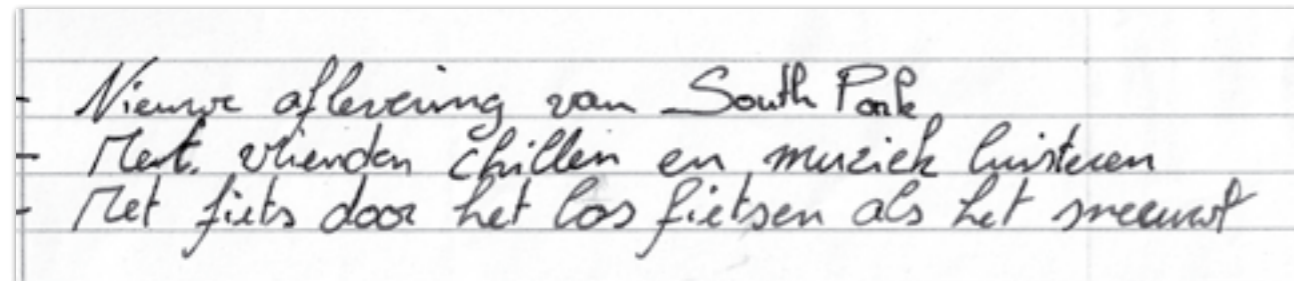 - Nieuwe aflevering van South Park
- Met vrienden chillen en muziek luisteren
- Met fiets door het bos fietsen als het sneeuwt